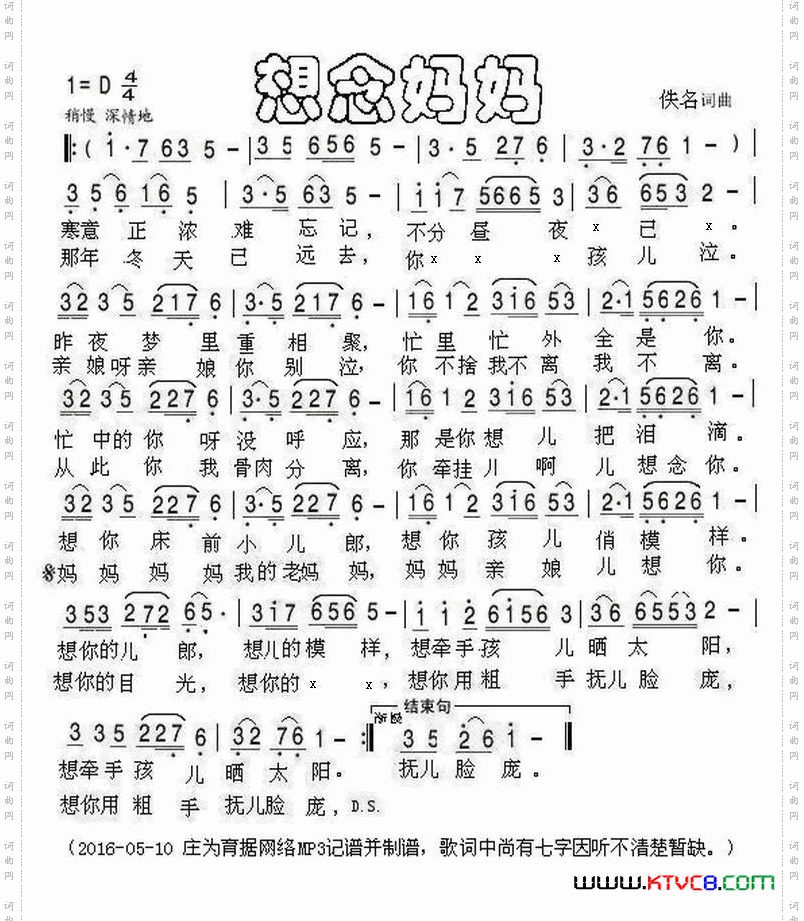 想念妈妈
1= D 4/4
稍慢 深情地
佚名词曲
‖:( i·7 63 5 - | 35 656 5 - | 3·5 27 6 | 3·2 76 1 - ) |
3 5 6 16 5 | 3·5 63 5 - | i i 7 5665 3 | 36 653 2 - |
寒意正浓难忘记，不分昼夜x已x。
那年冬天已远去，你x x x孩儿泣。
32 35 217 6 | 3·5 217 6 - | 16 12 3i6 53 | 2·1 5626 1 - |
昨夜梦里重相聚，忙里忙外全是你。
亲娘呀亲娘你别泣，你不捨我不离我不离。
32 35 227 6 | 3·5 227 6 - | 16 12 3i6 53 | 2·1 5626 1 - |
忙中的你呀没呼应，那是你想儿把泪滴。
从此你我骨肉分离，你牵挂儿啊儿想念你。
32 35 227 6 | 3·5 227 6 - | 16 12 3i6 53 | 2·1 5626 1 - |
想你床前小儿郎，想你孩儿俏模样。
妈妈妈妈我的老妈妈，妈妈亲娘儿想你。
353 272 65· | 3i7 656 5 - | i i 2 6i56 3 | 36 6553 2 - |
想你的儿郎，想儿的模样，想牵手孩儿晒太阳，
想你的目光，想你的x x，想你用粗手抚儿脸庞，
结束句
3 35 227 6 | 32 76 1 - :‖ 35 26 i - ‖
想牵手孩儿晒太阳。抚儿脸庞。
想你用粗手抚儿脸庞，D.S.
（2016-05-10 庄为育据网络MP3记谱并制谱，歌词中尚有七字因听不清楚暂缺。）
www.KTVC8.com